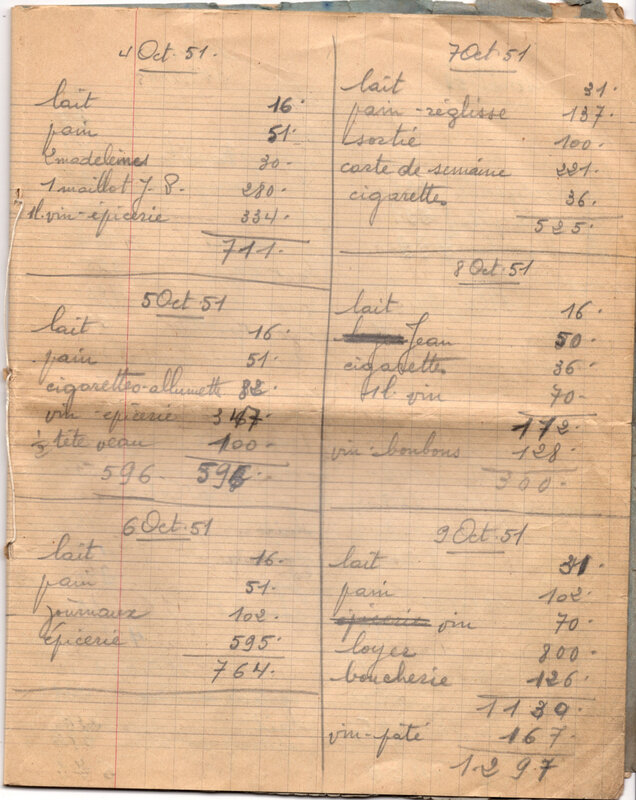 4 Oct. 51.
lait 16.
pain 51.
2 madeleines 30.
1 maillot J. P. 280.
1l. vin-épicerie 334.
711.
5 Oct. 51
lait 16.
pain 51.
cigarettes-allumette 82.
vin-épicerie 347.
½ tête veau 100.
596. 596.
6 Oct. 51
lait 16.
pain 51.
journaux 102.
épicerie 595.
764.
7 Oct. 51
lait 31.
pain-réglisse 137.
sortie 100.
carte de semaine 221.
cigarettes 36.
525.
8 Oct. 51
lait 16.
Jean 50.
cigarettes 36.
1l. vin 70.
172.
vin-bonbons 128.
300.
9 Oct. 51
lait 31
pain 102.
épicerie vin 70.
loyer 800.
boucherie 126.
1130.
vin-pâté 167.
1297